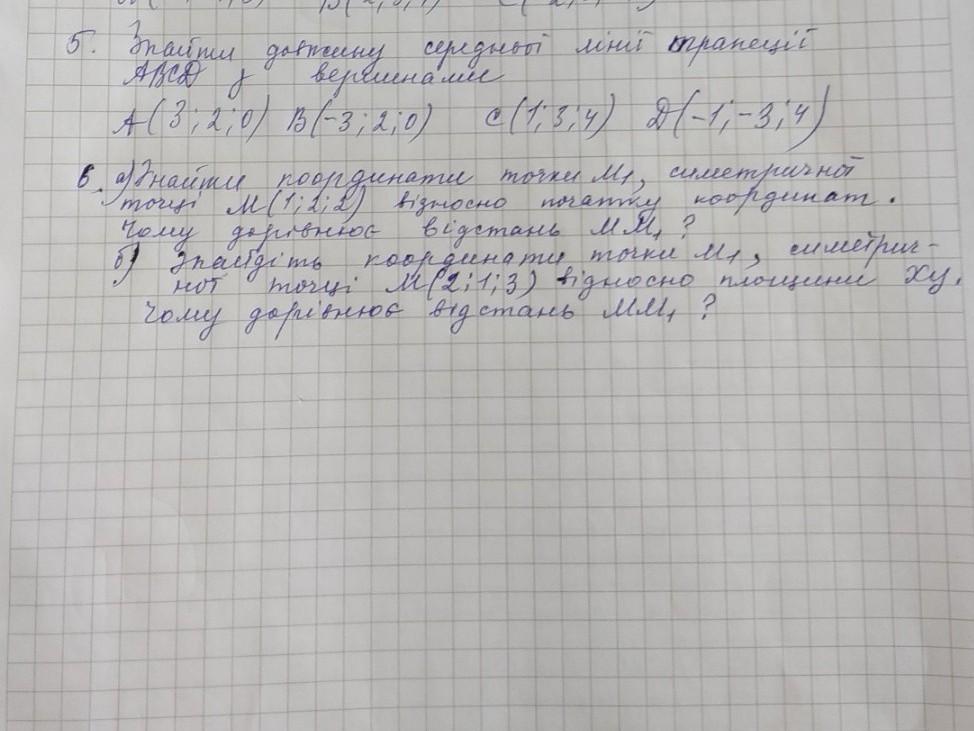 5. Знайти довжину середньої лінії трапеції
ABCD з вершинами
A(3;2;0) B(-3;2;0) C(1;3;4) D(-1;-3;4)
6. а) Знайти координати точки M₁, симетричної
точці M(1;2;2) відносно початку координат.
Чому дорівнює відстань MM₁?
б) Знайдіть координати точки M₁, симетрич-
ної точці M(2;1;3) відносно площини xy.
Чому дорівнює відстань MM₁?